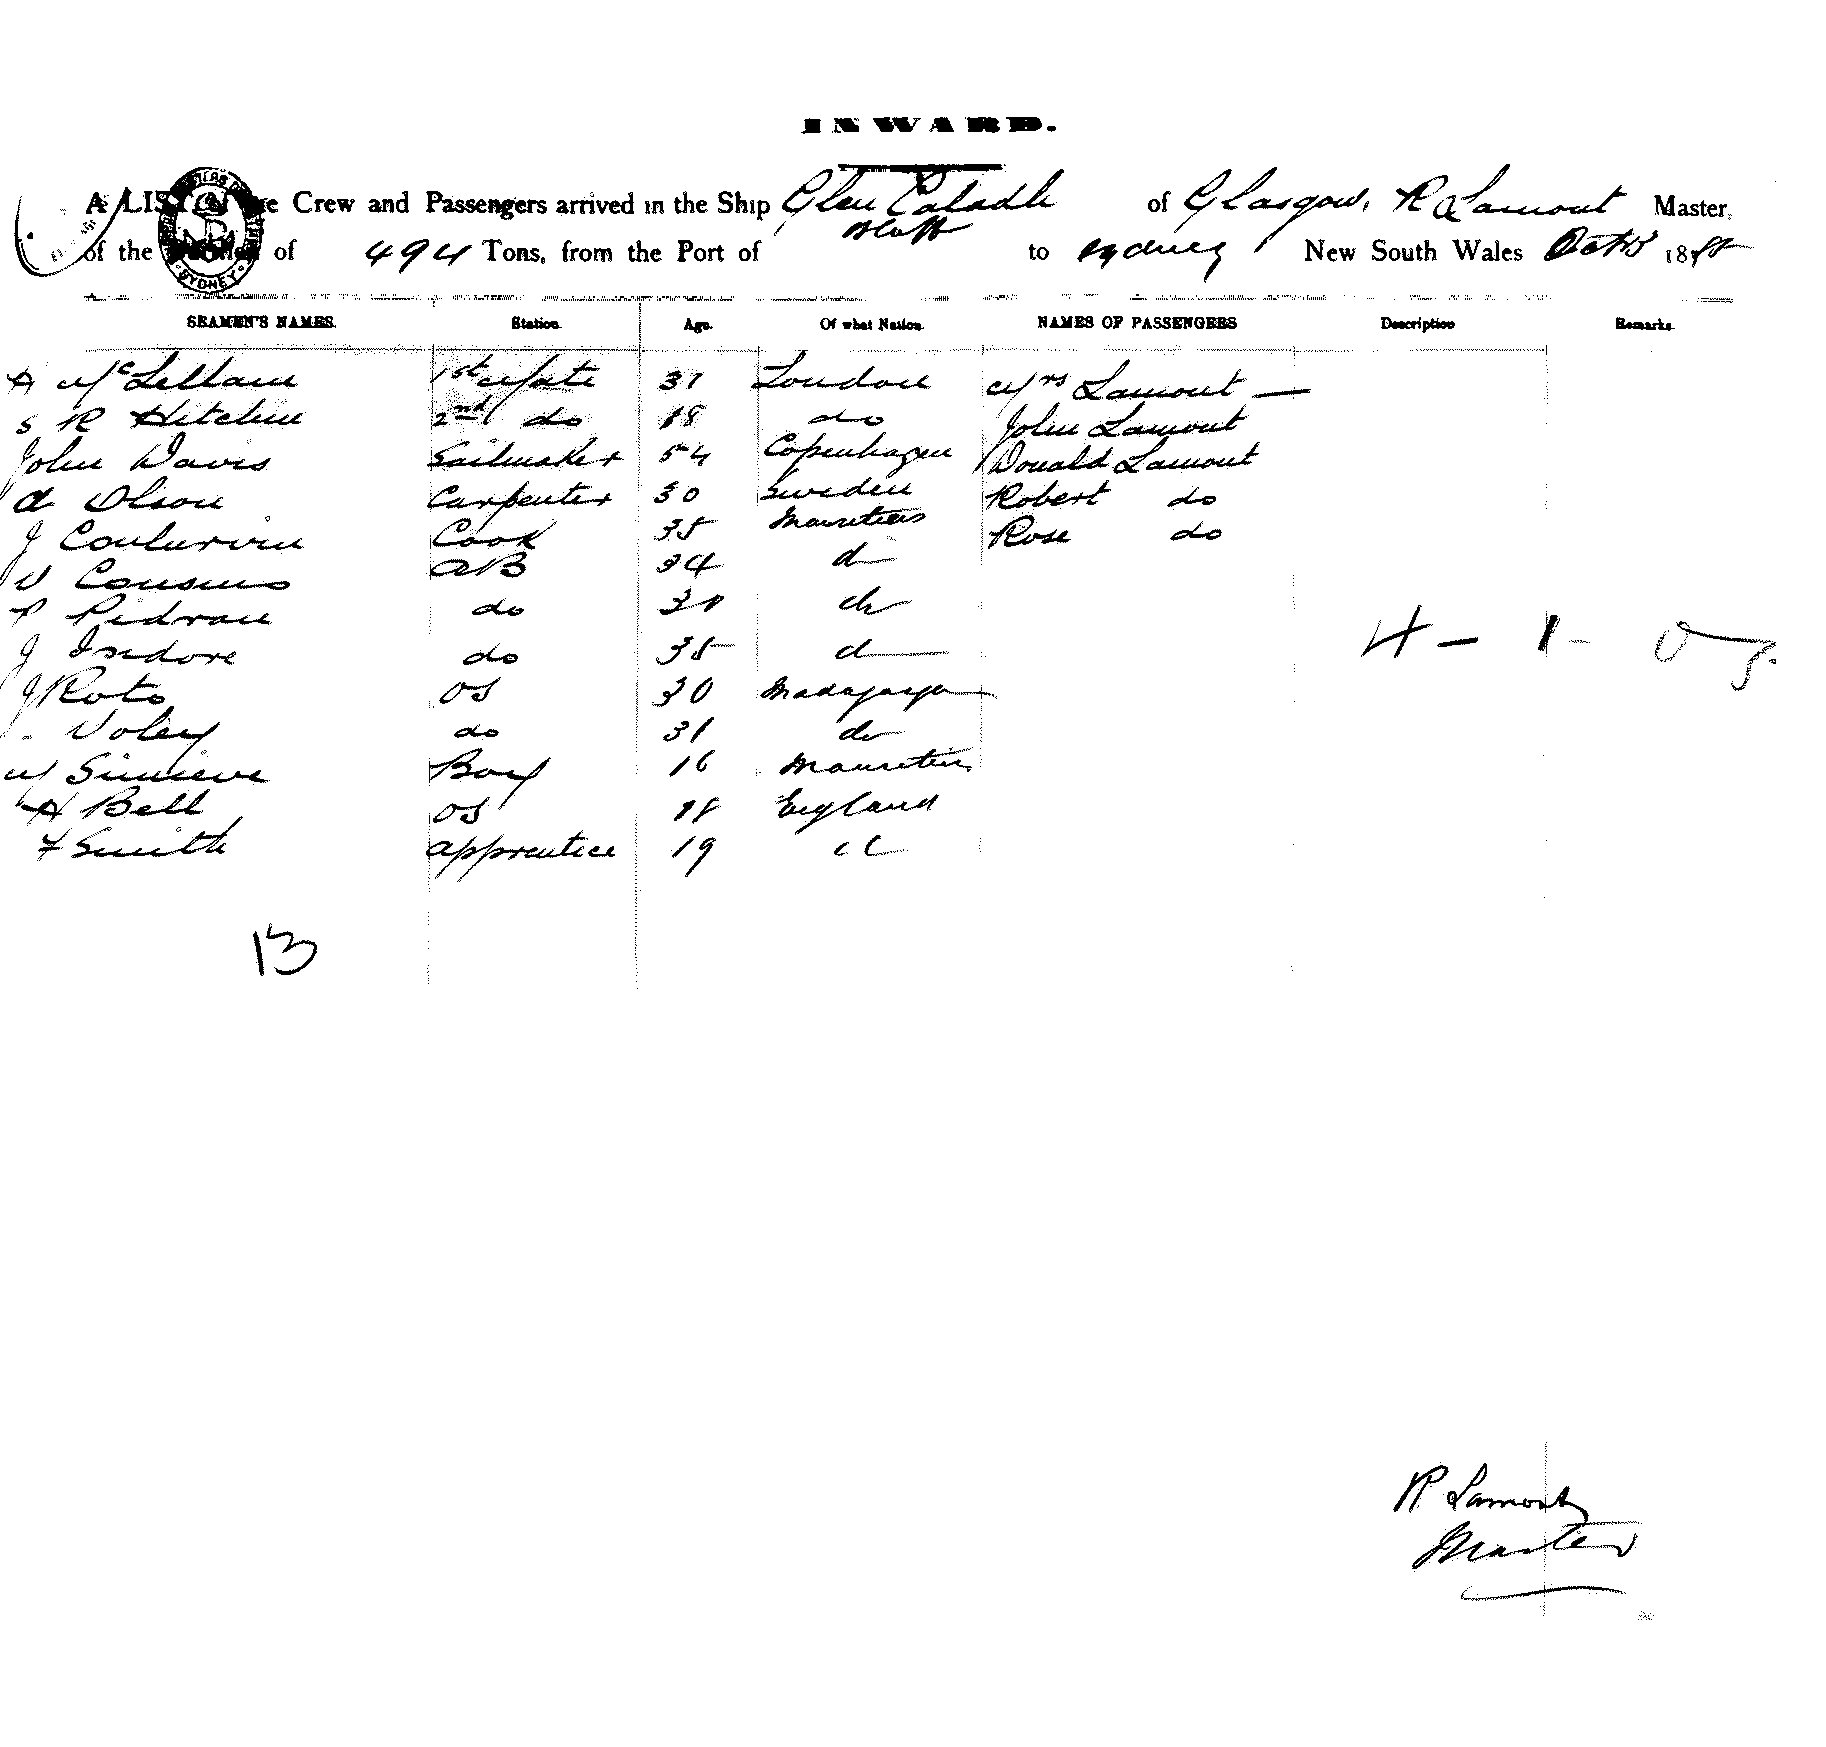 INWARD.
A LIST of the Crew and Passengers arrived in the Ship Glen Caladh of Glasgow, R Lamont Master,
of the of 494 Tons, from the Port of to Sydney New South Wales Oct 18
SEAMEN'S NAMES. Station. Age. Of what Nation. NAMES OF PASSENGERS Description Remarks.
A McLellan 1st Mate 37 London Mrs Lamont —
S R Hitchin 2nd do 18 do John Lamont
John Davis Sailmaker 54 Copenhagen Donald Lamont
A Olson Carpenter 30 Sweden Robert do
J Cook 35 Mauritius Rose do
Cousins AB 34 d
P Pedran do 30 do
J Isidore do 35 d
J Roto OS 30
Voley do 31 do
M Boy 16 Mauritius
A Bell OS 18 England
F Smith apprentice 19 "
4 - 1 -
13
R Lamont
Master
SYDNEY